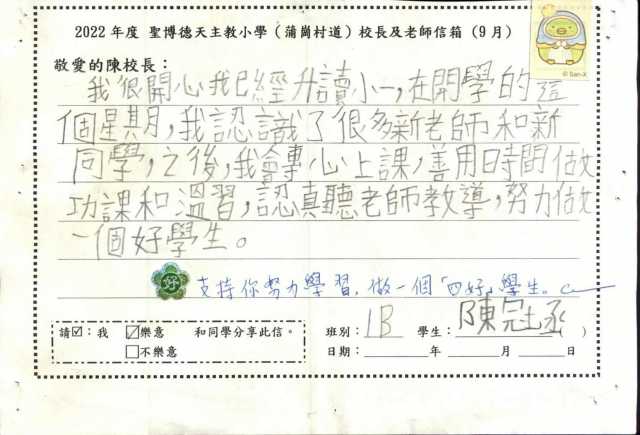 2022 年度 聖博德天主教小學（蒲崗村道）校長及老師信箱（9 月）
敬愛的陳校長：
我很開心我已經升讀小一，在開學的這
個星期，我認識了很多新老師和新
同學，之後，我會專心上課，善用時間做
功課和溫習，認真聽老師教導，努力做
一個好學生。
好 支持你努力學習，做一個「四好」學生。
請☑：我 ☑樂意 和同學分享此信。
□不樂意
班別：1B 學生：陳冠丞）
日期： 年 月 日
© San-X